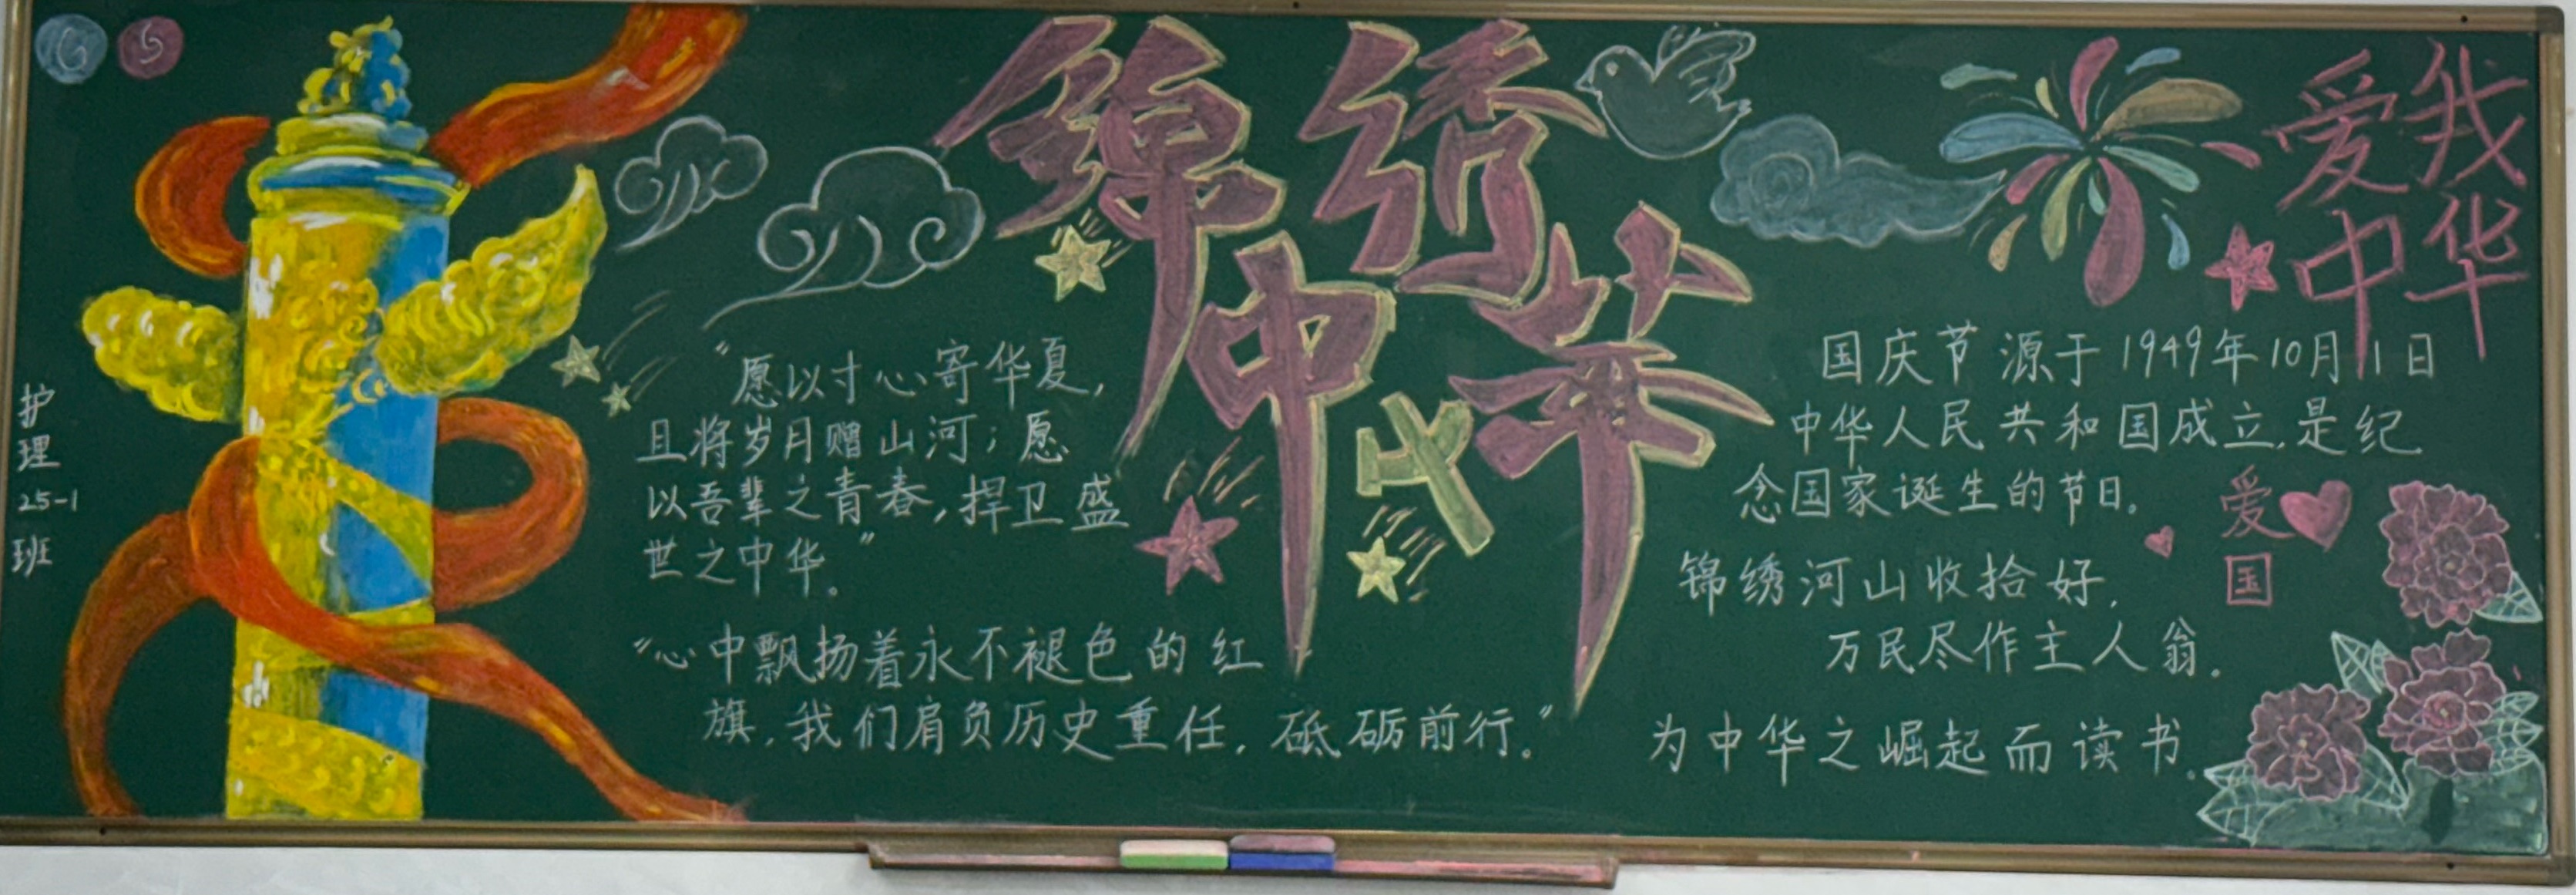 G S
护理25-1班
锦绣
中华
"愿以寸心寄华夏,
且将岁月赠山河;愿
以吾辈之青春,捍卫盛
世之中华。"
"心中飘扬着永不褪色的红
旗,我们肩负历史重任,砥砺前行。"
我爱
中华
国庆节源于1949年10月1日
中华人民共和国成立,是纪
念国家诞生的节日。
爱
国
锦绣河山收拾好,
万民尽作主人翁。
为中华之崛起而读书。